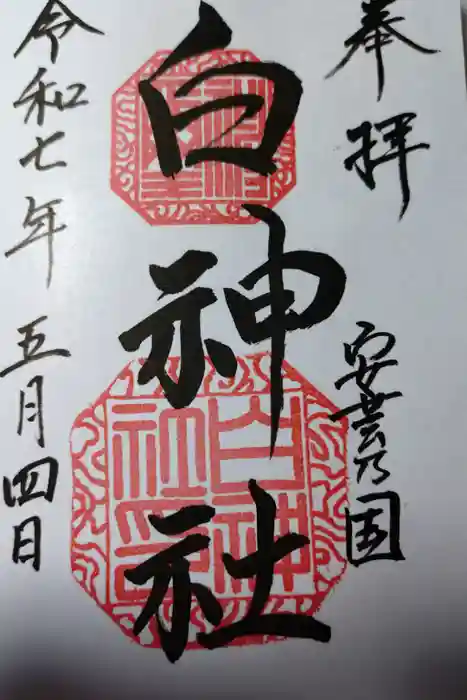 奉拝
安芸乃国
白神社
白神社印
令和七年五月四日